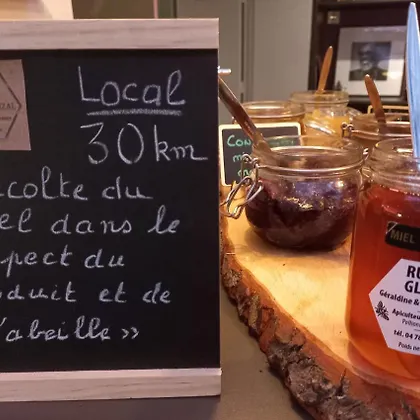 Local
30km
colte du
el dans le
pect du
oduit et de
'abeille »
MIEL
RU
GL
Géraldine &
Apiculteu
tél. 04 78
Poids ne